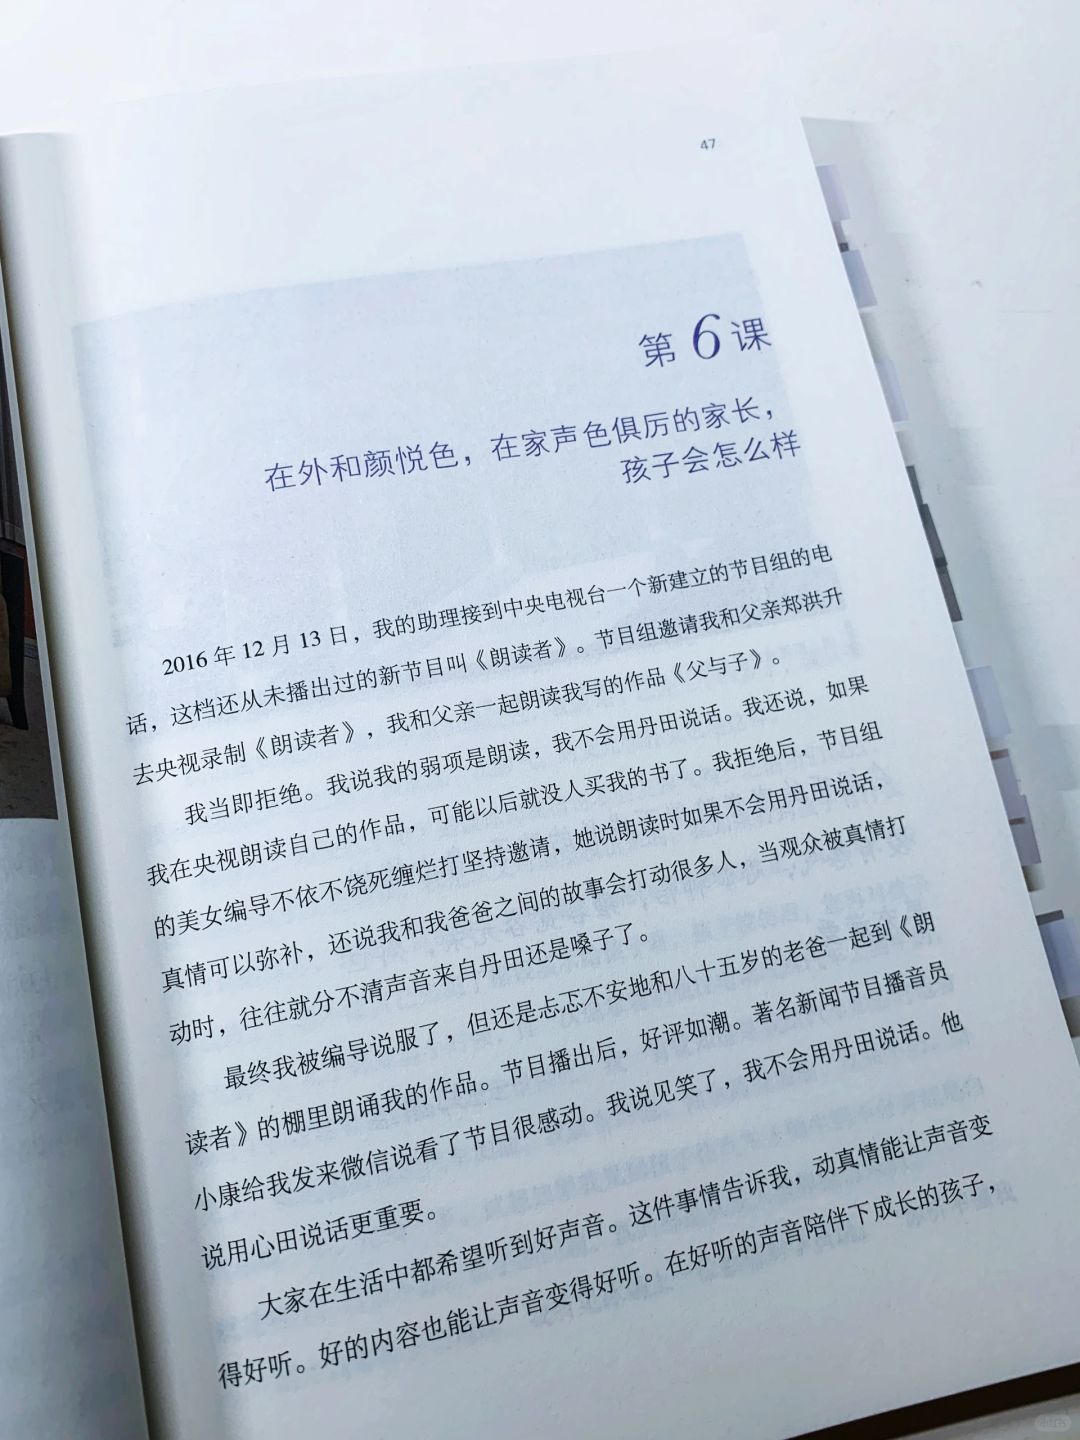 47
第 6 课
在外和颜悦色，在家声色俱厉的家长，
孩子会怎么样
2016 年 12 月 13 日，我的助理接到中央电视台一个新建立的节目组的电
话，这档还从未播出过的新节目叫《朗读者》。节目组邀请我和父亲郑洪升
去央视录制《朗读者》，我和父亲一起朗读我写的作品《父与子》。
我当即拒绝。我说我的弱项是朗读，我不会用丹田说话。我还说，如果
我在央视朗读自己的作品，可能以后就没人买我的书了。我拒绝后，节目组
的美女编导不依不饶死缠烂打坚持邀请，她说朗读时如果不会用丹田说话，
真情可以弥补，还说我和我爸爸之间的故事会打动很多人，当观众被真情打
动时，往往就分不清声音来自丹田还是嗓子了。
最终我被编导说服了，但还是忐忑不安地和八十五岁的老爸一起到《朗
读者》的棚里朗诵我的作品。节目播出后，好评如潮。著名新闻节目播音员
小康给我发来微信说看了节目很感动。我说见笑了，我不会用丹田说话。他
说用心田说话更重要。
大家在生活中都希望听到好声音。这件事情告诉我，动真情能让声音变
得好听。好的内容也能让声音变得好听。在好听的声音陪伴下成长的孩子，